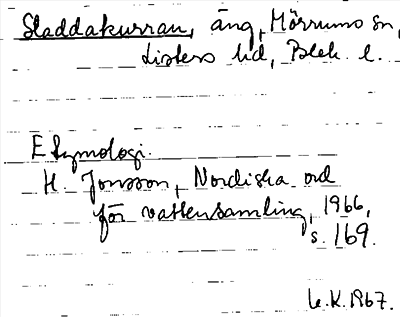 Sladdakurran, äng, Mörrums sn,
Listers hd, Blek. l.
Etymologi.
H. Jonsson, Nordiska ord
för vattensamling, 1966,
s. 169.
K. 1967.